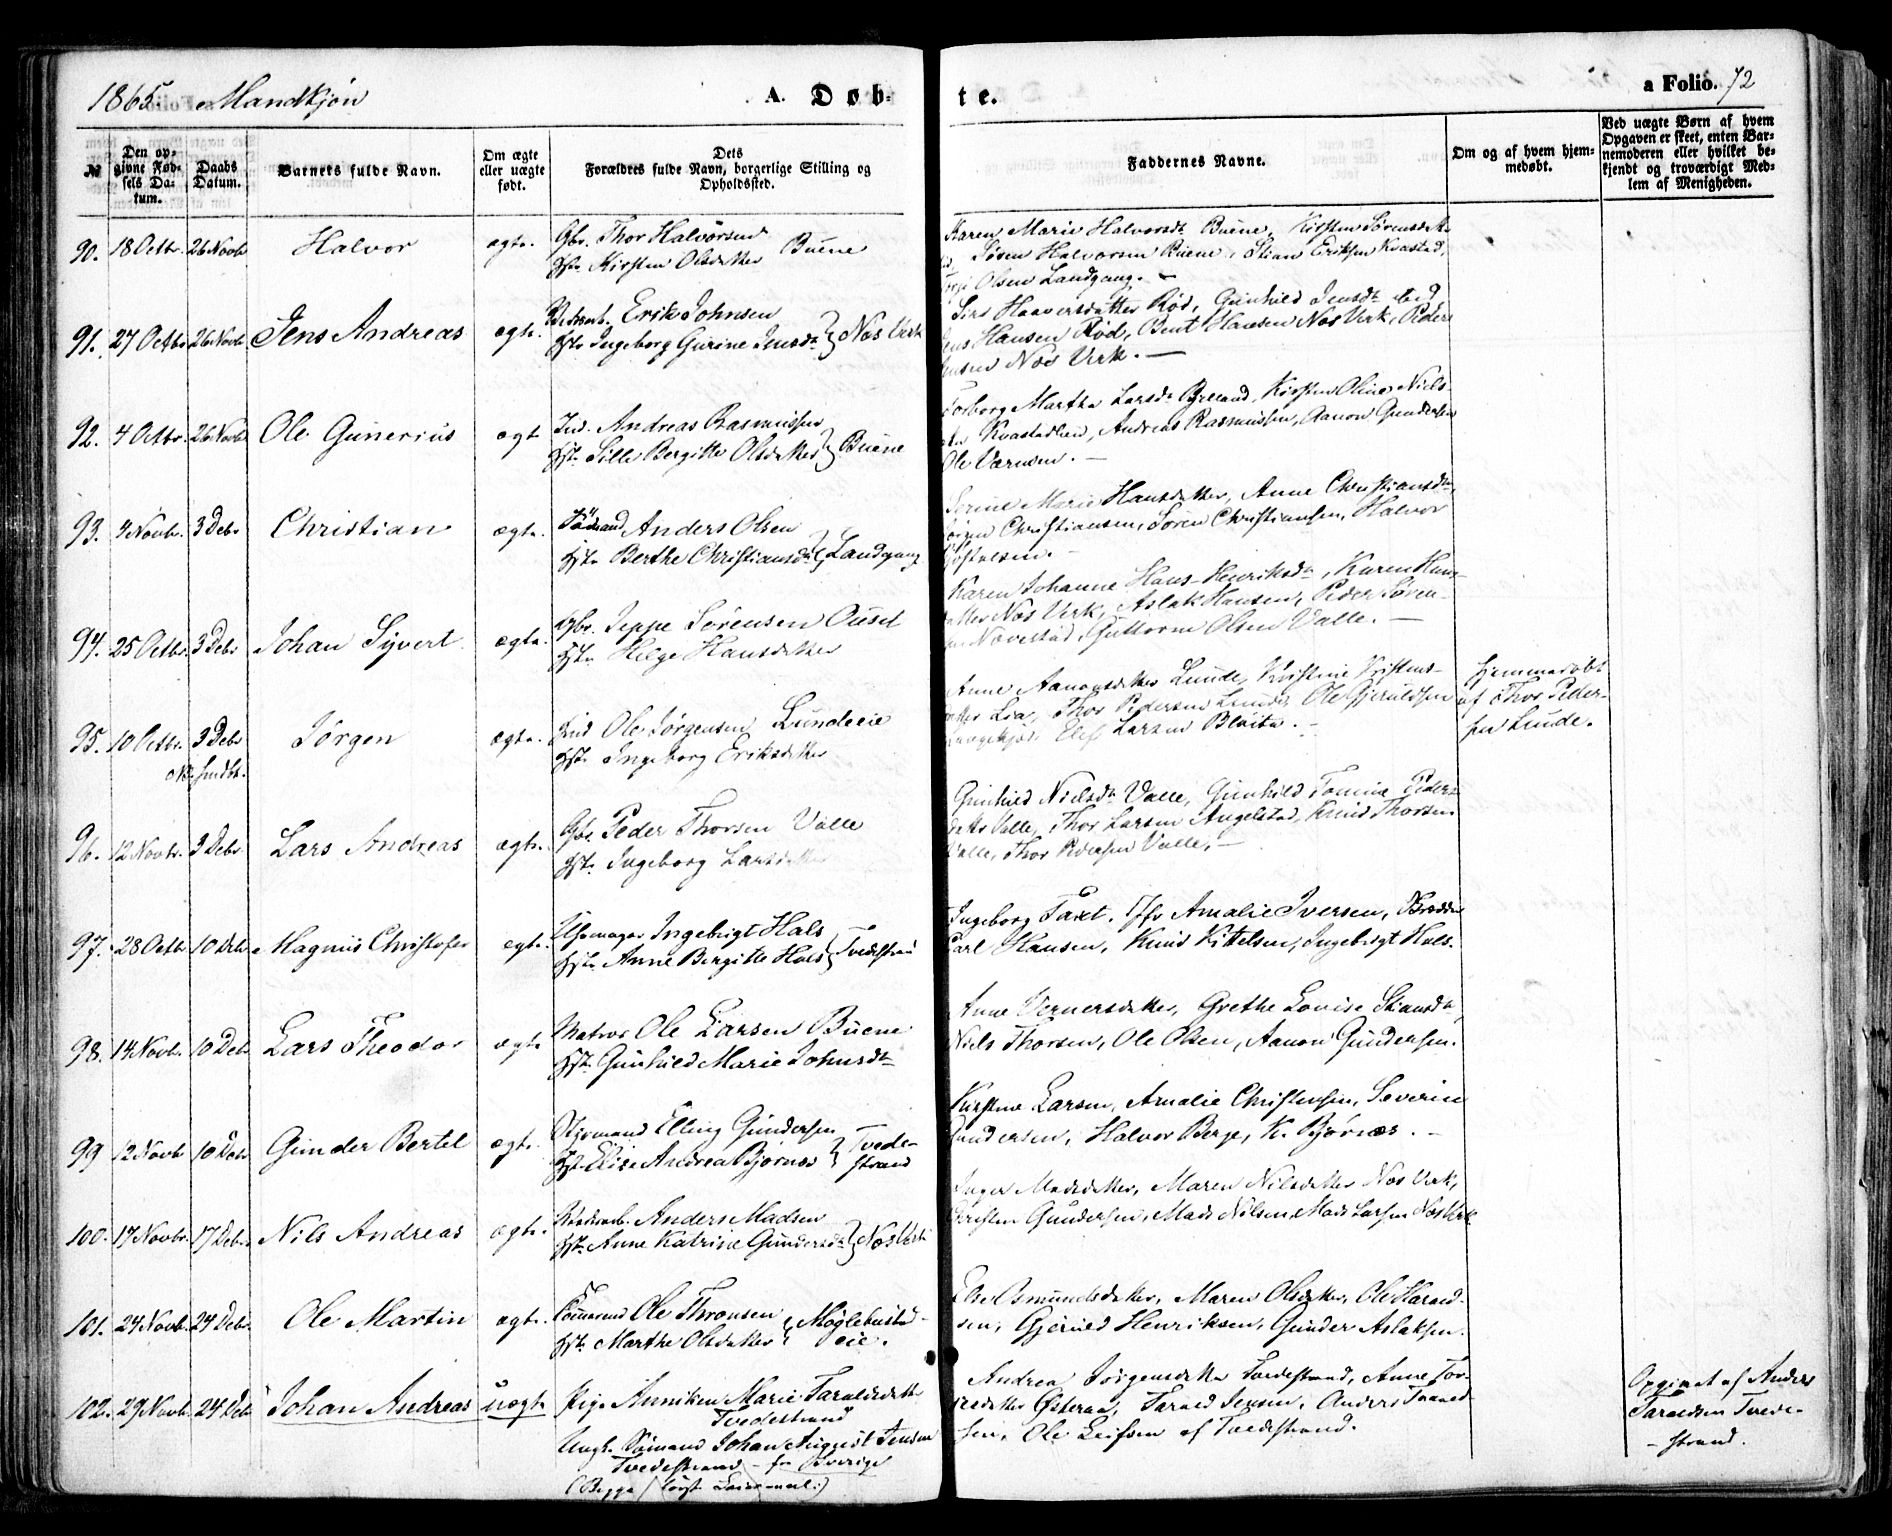 1865. Mandkjøn
A. Døbte.
a Folio. 72
№
Den opgivne Fødsels Datum.
Daabs Datum.
Barnets fulde Navn.
Om ægte eller uægte født.
Dets Forældres fulde Navn, borgerlige Stilling og Opholdssted.
Faddernes Navne.
Om og af hvem hjemmedøbt.
Ved uægte Børn af hvem Opgaven er skeet, enten Barnemoderen eller hvilket bekjendt og troværdigt Medlem af Menigheden.
90. 18 Octbr. 26 Novbr Halvor ægte. Gbr. Thor Halvorsen
Hst. Kirsten Olsdatter Buene
Karen Marie Halvorsdt Buene, Kirsten Sørensdatter
Søren Halvorsen Buene, Stian Eriksen Kvastad,
Olsen Landgang. —
91. 27 Octbr 26 Novb Jens Andreas ægte. Erik Johnsen
Hst. Ingeborg Gurine Jensdt } Næs Verk
Siri Haaversdatter Rød, Gunhild Jensdt ibid,
Jens Hansen Rød, Bent Hansen Næs Verk, Peder
Jensen Næs Verk. —
92. 4 Octbr. 26 Novb Ole Gunerius ægt Ind. Andreas Rasmussen
Hst. Sille Bergitte Olsdatter } Buene
Torborg Marthe Larsdt Kirsten Oline Niels-
Kvastadlien, Andreas Rasmussen, Aanon Gundersen
Ole Værnsen. —
93. 4 Novbr. 3 Debr Christian ægte. Sømand Anders Olsen
Hst. Berthe Christiansdt } Landgang
Serine Marie Hansdatter, Anne Christiansdt,
Jørgen Christiansen, Søren Christiansen, Halvor
94. 25 Octbr. 3 Debr Johan Syvert ægte. Gbr. Jeppe Sørensen Ousel
Hst. Helge Hansdatter
Karen Johanne Hans-Henriksdt, Karen Han-
datter Næs Verk, Aslak Hansen, Peder Søren-
sen Nævestad, Guttorm Olsen Valle. —
95. 10 Octbr. 3 Debr Jørgen ægte. Ind Ole Jørgensen Lundeeie
Hst. Ingeborg Eriksdatter
Anne Aanonsdatter Lunde, Kristine Kristens-
datter Lia, Thor Pedersen Lunde, Ole Gjeruldsen
Elef Larsen —
hjemmedøbt
af Thor Peder-
sen Lunde.
96. 12 Novbr. 3 Debr Lars Andreas ægte. Gbr Peder Thorsen Valle
Hst. Ingeborg Larsdatter
Gunhild Nielsdt Valle, Gunhild Tomine Peders-
datter Valle, Thor Larsen Angelstad, Knud Thorsen
Valle, Thor Pedersen Valle. —
97. 28 Octbr 10 Debr Magnus Christofer ægte. Uhrmager Ingebrigt Hals
Hst. Anne Bergitte Hals } Tvedestrand
Ingeborg Taxt, Jfr Amalie Iversen,
Carl Hansen, Knud Kittelsen, Ingebrigt Hals.
98. 14 Novbr. 10 Debr Lars Theodor ægte Matros Ole Larsen Buene
Hst. Gunhild Marie Johnsdt
Anne Vernersdatter, Grethe Lovise Stiansdt,
Niels Thorsen, Ole Olsen, Aanon Gundersen.
99 12 Novb 10 Debr Gunder Bertel ægte. Styrmand Elling Gundersen
Hst. Elise Andrea Bjørnæs } Tvede-
strand
Kirstine Larsen, Amalie Christensen, Severin
Gundersen, Halvor Berge, K. Bjørnæs. —
100. 17 Novbr. 17 Debr. Nils Andreas ægte. Anders Madsen
Hst. Anne Katrine Gundersdt } Næs Verk
Inger Madsdatter, Maren Nilsdatter Næs Verk,
Christen Gundersen, Mads Nilsen, Mads Larsen Næs Verk
101. 24 Novbr. 24 Debr. Ole Martin ægte. Tømmermand Ole Thronsen
Hst. Marthe Olsdatter } Møglebustad-
eie.
Else Osmundsdatter, Maren Olsdatter, Ole Harald-
sen, Gjeruld Henriksen, Gunder Aslaksen.
102. 29 Novbr. 24 Debr Johan Andreas uægte Pige Anniken Marie Taraldsdatter
Tvedestrand
Ungk. Sømand Johan August Jensen
Tvedestrand — fra Sverige
(Begge første Leiermaal:)
Andrea Jørgensdatter Tvedestrand, Anne Tor-
datter Østeraa, Tarald Jensen, Anders Tarald-
sen, Ole Leifsen af Tvedestrand.
Opgivet af Anders
Taraldsen Tvede-
strand.